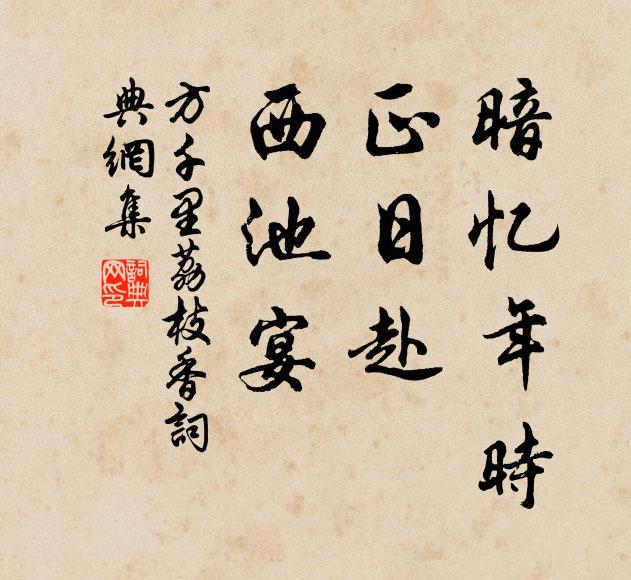 暗忆年時
正日赴
西池宴
方千里荔枝香詞
典網集
詞典网印